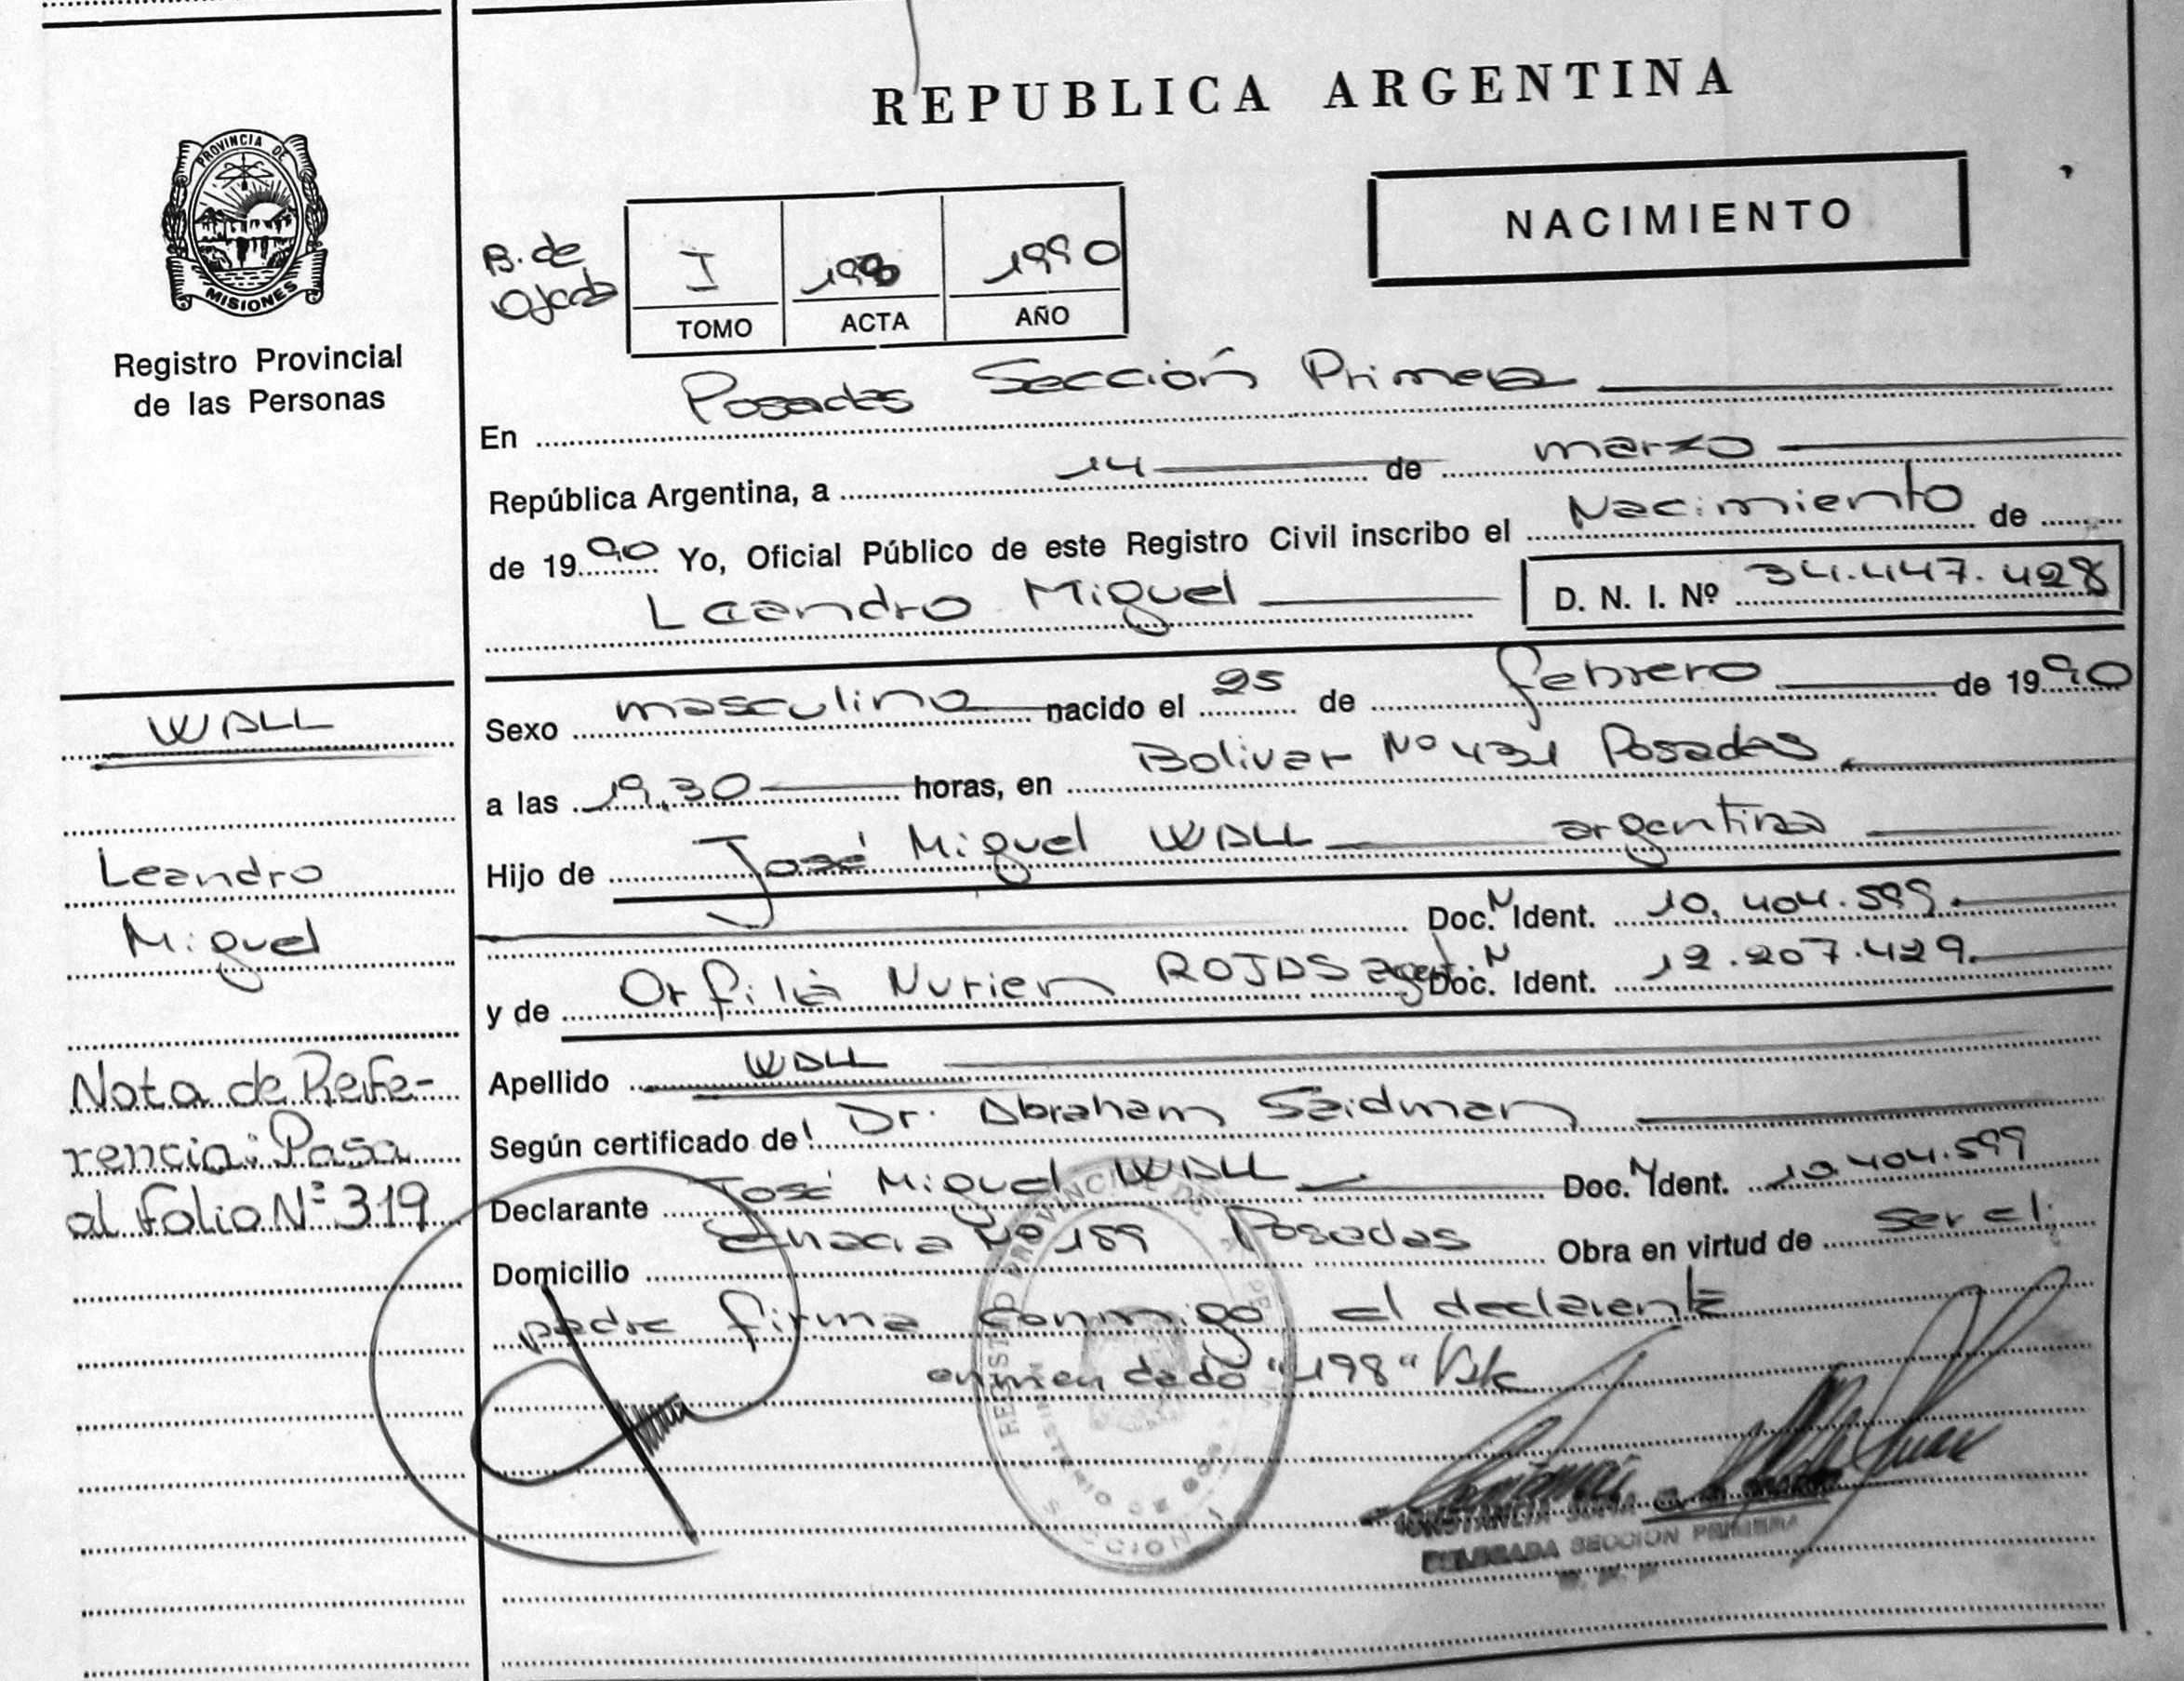 REPUBLICA ARGENTINA
PROVINCIA DE
MISIONES
Registro Provincial
de las Personas
NACIMIENTO
B. de
I 198 1990
TOMO ACTA AÑO
En Posadas Sección Primera
República Argentina, a 14 de marzo
de 1990 Yo, Oficial Público de este Registro Civil inscribo el Nacimiento de
Leandro Miguel D. N. I. Nº 34.447.428
WALL
Leandro
Miguel
Nota de Refe-
rencia: Pasa
al folio Nº 319
Sexo masculino nacido el 25 de febrero de 1990
a las 19,30 horas, en Bolivar Nº 431 Posadas
Hijo de José Miguel WALL argentina
Doc. N Ident. 10.404.599
y de Orfilia Nurien ROJAS argent. Doc. N Ident. 12.207.429
Apellido WALL
Según certificado de: Dr. Abraham Saidman
Declarante José Miguel WALL Doc. N Ident. 10.404.599
Domicilio Nº 189 Posadas Obra en virtud de ser el
padre firma conmigo el declarante
enmendado "198" Vale
REGISTRO PROVINCIAL DE
MINISTERIO DE GOB
SECCION 1
CONSTANCIA
DELEGADA SECCION PRIMERA